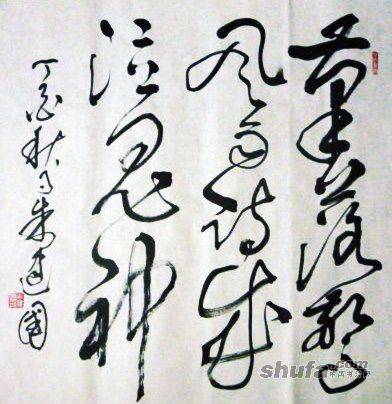 筆落驚
風雨詩成
泣鬼神
丁亥秋月朱建國
shufa.com